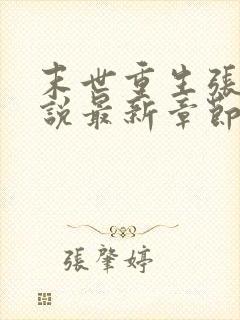 末世重生張
說最新章節
張肇婷